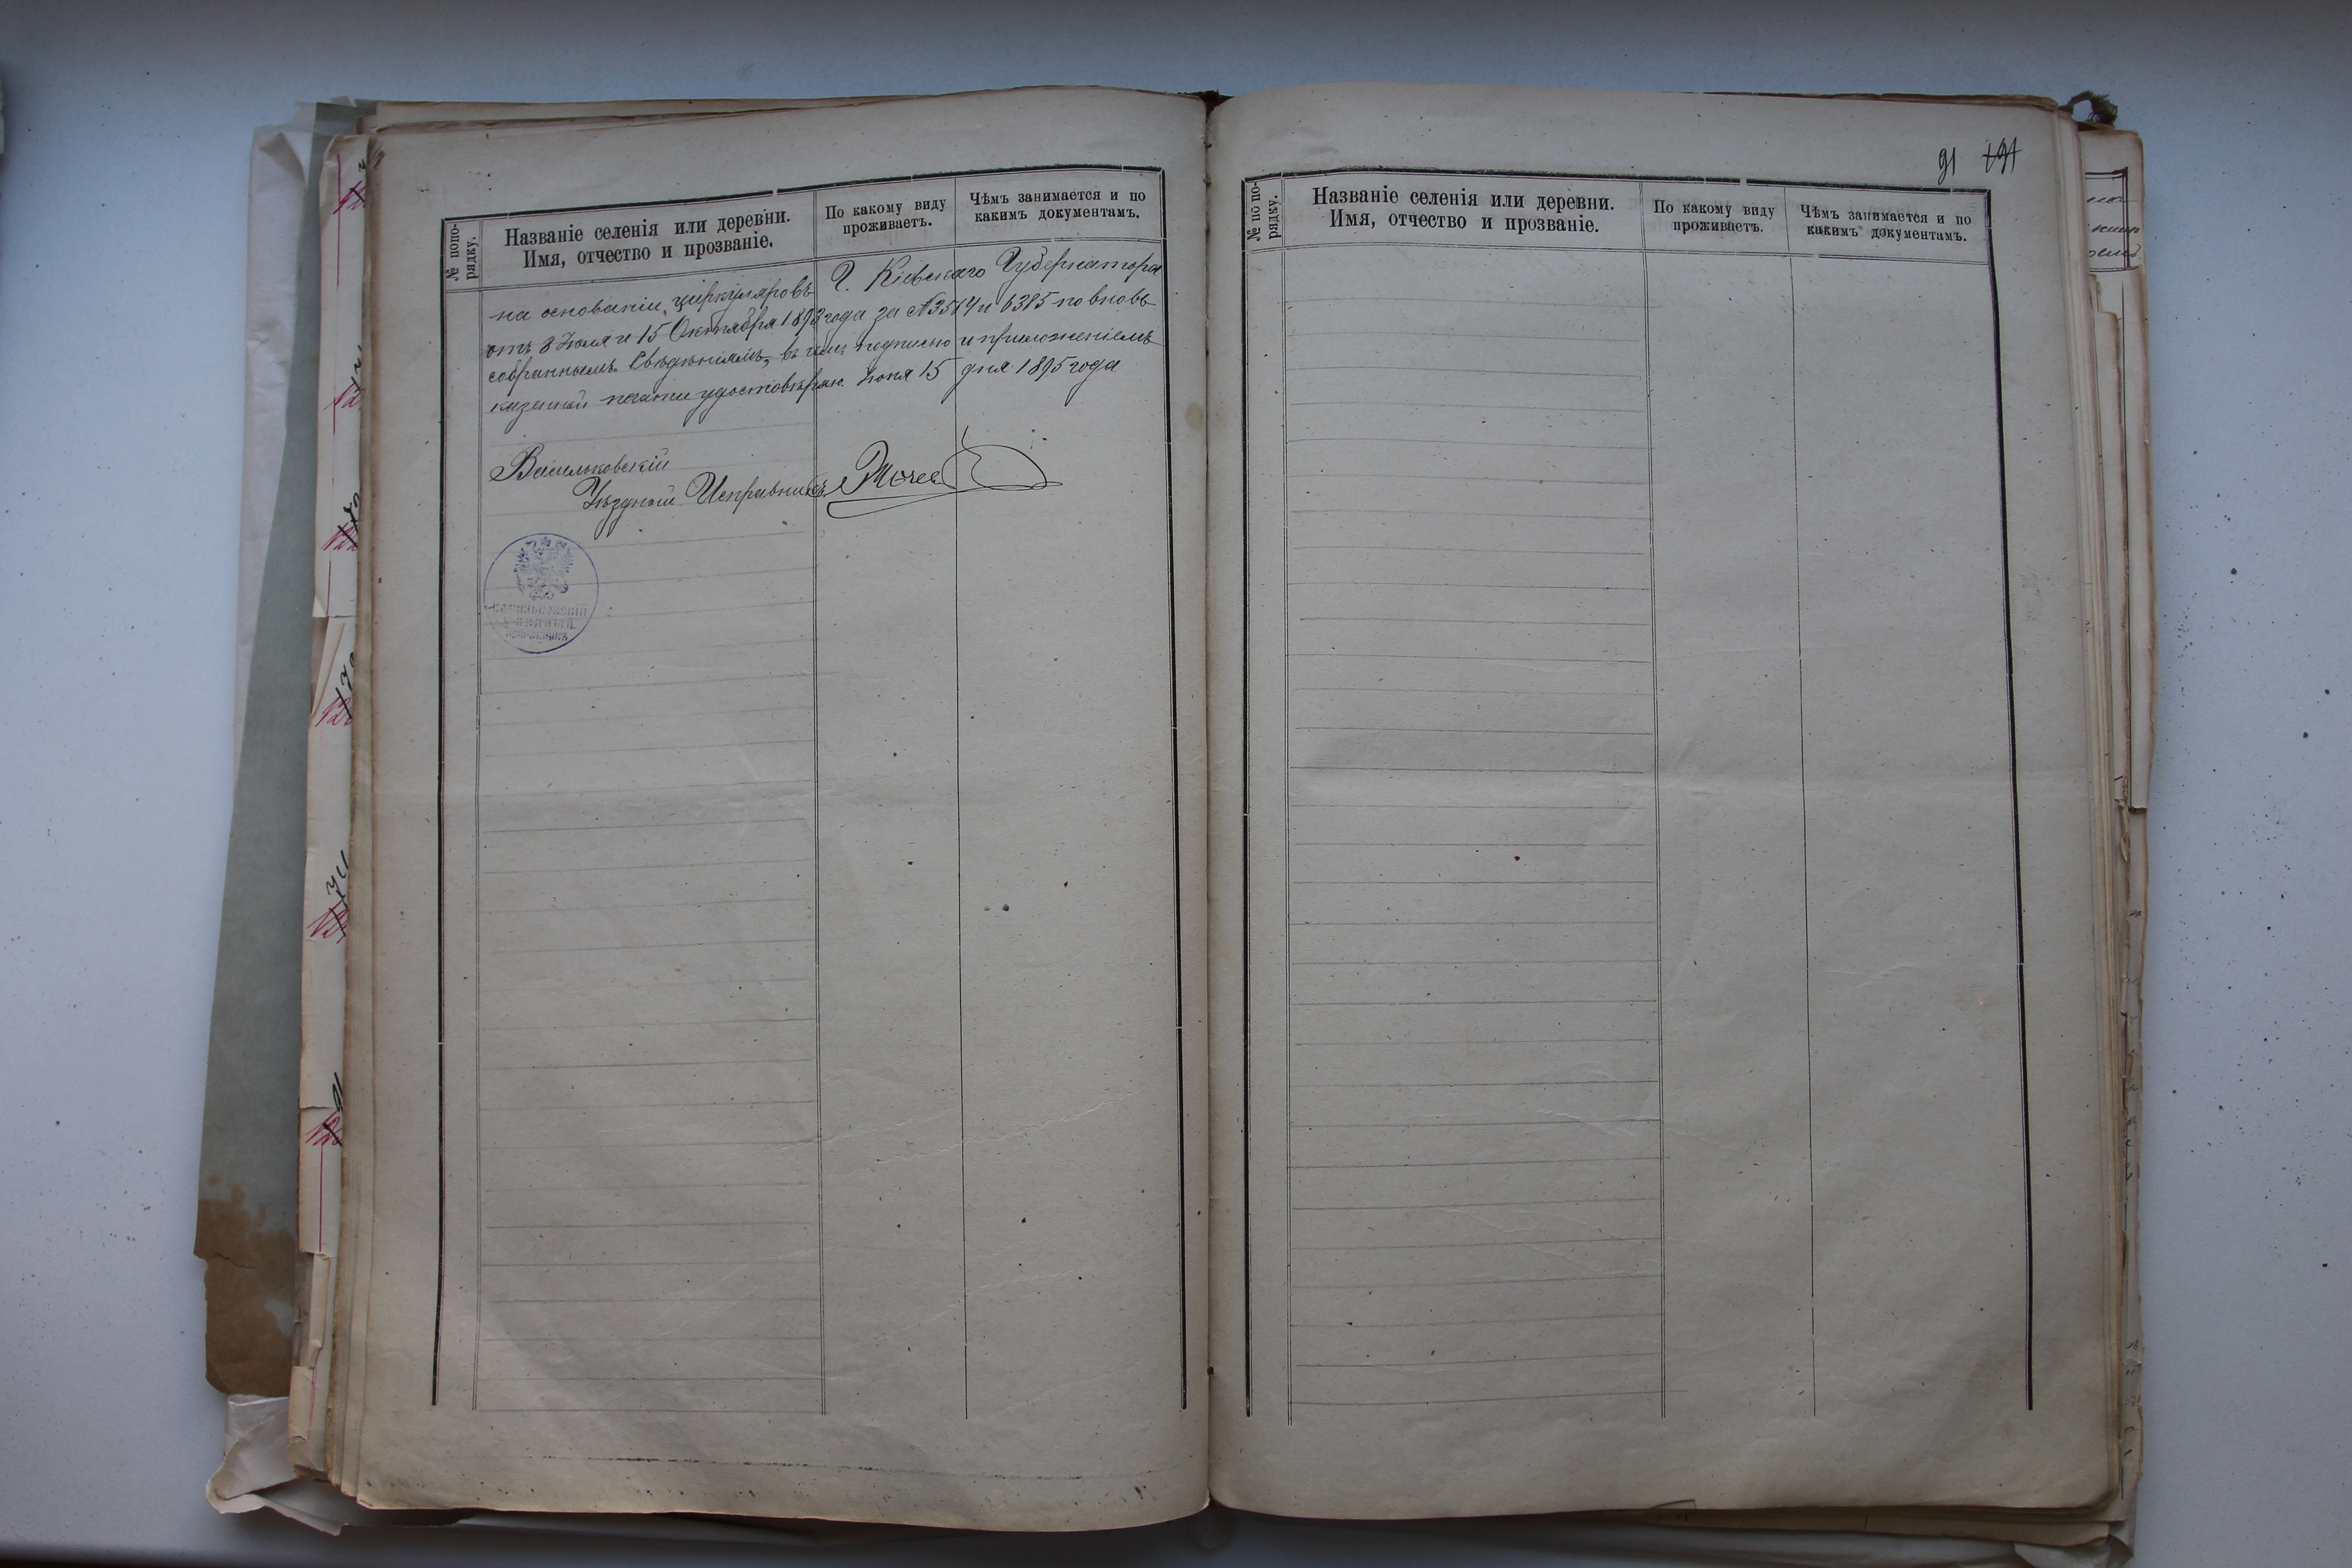 № попо-
рядку.
Названіе селенія или деревни.
Имя, отчество и прозваніе.
По какому виду
проживаетъ.
Чѣмъ занимается и по
какимъ документамъ.
на основаніи циркуляровъ Г. Кіевскаго Губернатора
отъ 8 Іюля и 15 Октября 1893 года за № 3514 и 6385 по вновь
собраннымъ свѣдѣніямъ, въ чемъ подписью и приложеніемъ
казенной печати удостовѣряю. Іюня 15 дня 1895 года
Васильковскій
Уѣздный Исправникъ
ВАСИЛЬКОВСКІЙ
УѢЗДНЫЙ
ИСПРАВНИКЪ
91 191
№ по по-
рядку.
Названіе селенія или деревни.
Имя, отчество и прозваніе.
По какому виду
проживаетъ.
Чѣмъ занимается и по
какимъ документамъ.